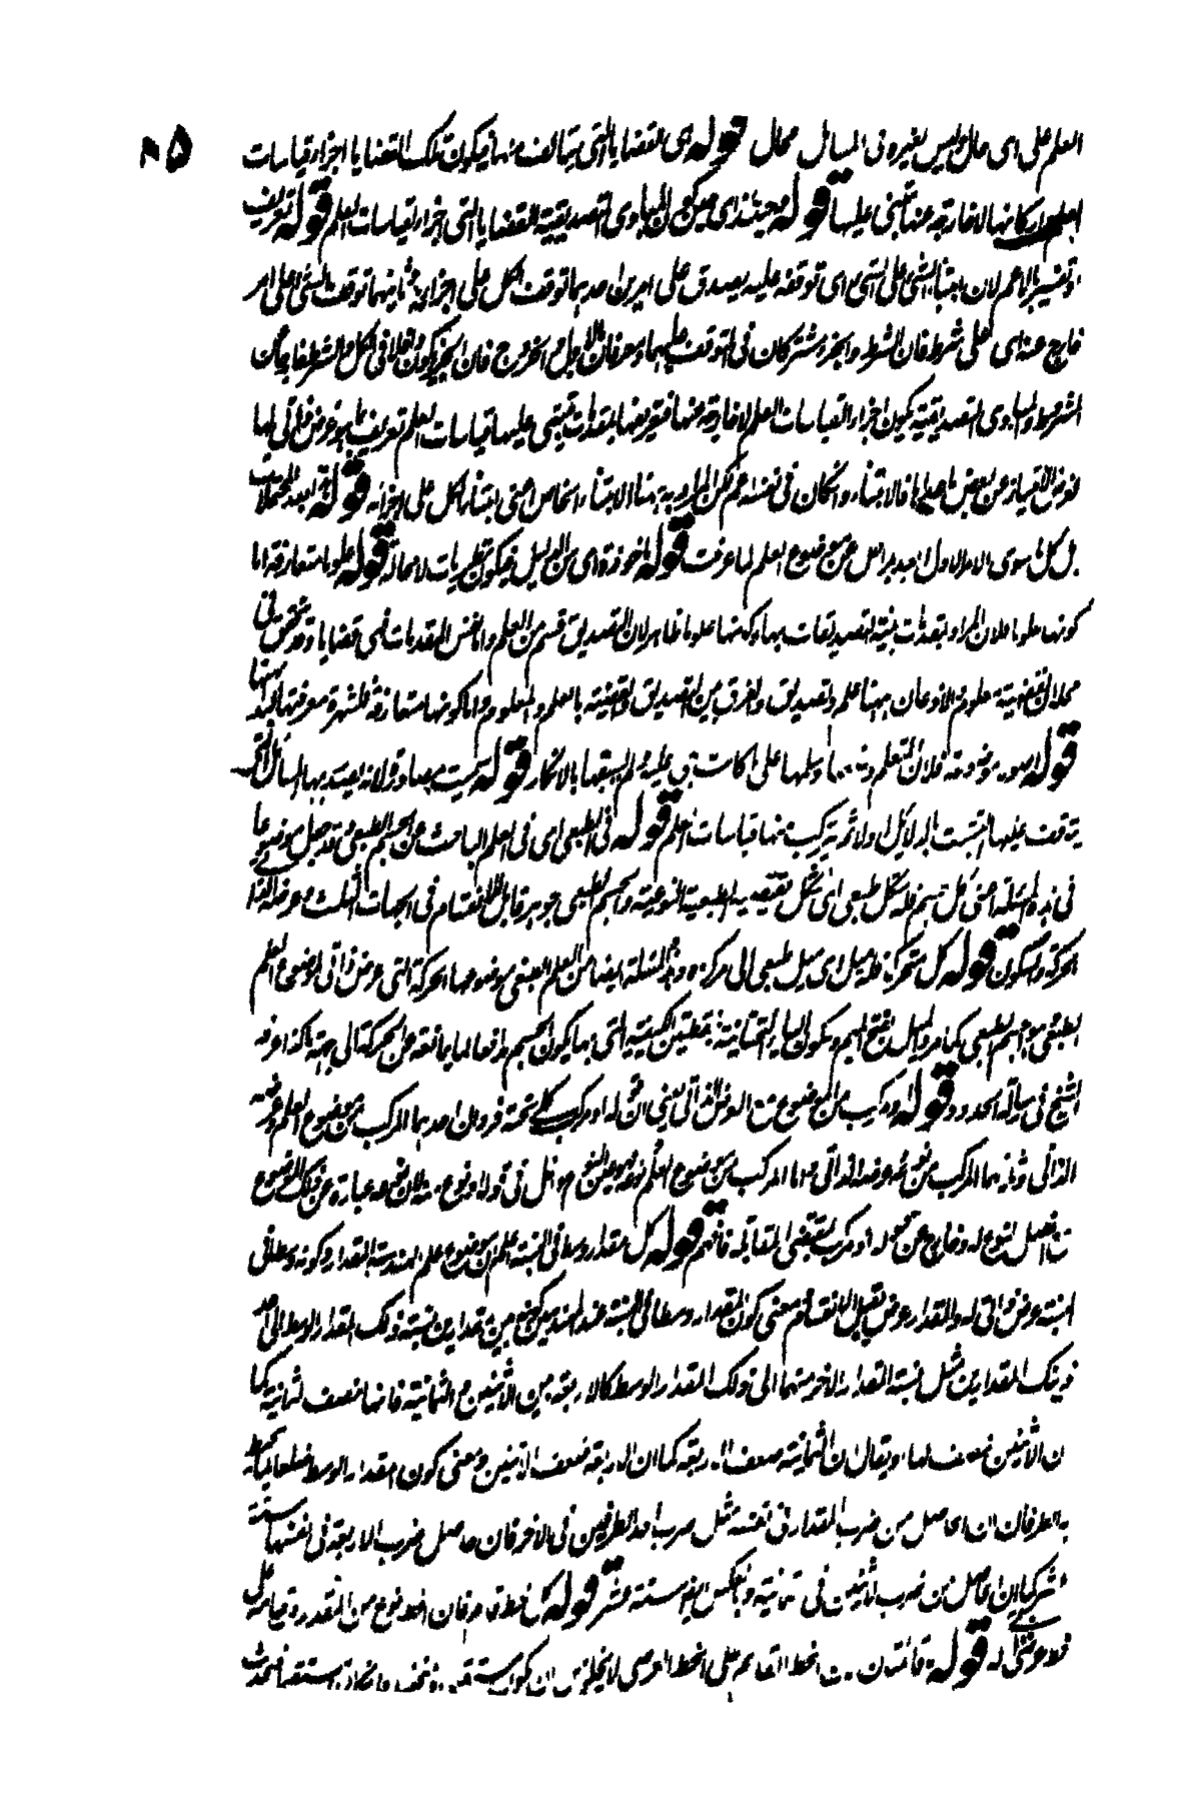 العلم على اى حال وليس لغيره فى المسائل مجال قوله اى القضايا التى يتالف منها فيكون تلك القضايا اجزاء قياسات
العلم واركانها لا خارجة عنها تبتنى عليها قوله فحينئذ اى حين كون المبادى التصديقية القضايا التى اجزاء لقياسات العلم قوله تعريف
وتفسير بالاعم لان ابتناء الشئ على الشئ اى توقفه عليه يصدق على امرين احدهما توقف الكل على اجزائه وثانيهما توقف الشئ على امر
خارج عنه اى على شرط فان الشرط والجزء مشتركان فى التوقف عليهما ومفترقان بالدخول والخروج فان الجزء يكون داخلا فى الكل والشرط خارجا عن
المشروط والمبادى التصديقية يكون اجزاء القياسات العلم لا خارجة عنها فتعريفها بمقدمات تبتنى عليها قياسات العلم تعريف بما هو عرض ذاتى لها
عن بعض ما عداها فالابتناء وان كان فى نفسه اعم لكن المراد به هنا الابتناء الخاص اعنى ابتناء الكل على اجزائه قوله ابعد المحتملات
بل كل ما سوى الاول ابعد بمراحل عن موضوع العلم لما عرفت قوله ماخوذة اى من الدليل فيكون نظريات لا محالة قوله علوما متعارفة اما
كونها علوما فلان المراد بمقدمات بينة التصديقات بها وكونها علوما ظاهر لان التصديق قسم من العلم واما نفس المقدمات فهى قضايا وقد تحقق فى
محله ان القضية معلوم والاذعان بها علم وتصديق والفرق بين التصديق والقضية بالعلم والمعلوم واما كونها متعارفة فلشهرة معرفتها
قوله اصولا موضوعة فلان المتعلم وسلمها على ولم يسبقها بالانكار قوله سميت مصادرة لانه يصدر بها المسائل التى
يتوقف عليها ثم يتركب منها قياسات العلم قوله فى الطبعى اى فى العلم الباحث عن الجسم الطبعى وقد جعل موضوعا
فى هذه المسئلة اعنى كل جسم فله شكل طبعى اى شكل تقتضيه الطبيعة النوعية والجسم الطبعى جوهر قابل للانقسام فى الجهات الثلث
الحركة والسكون قوله كل متحرك فله ميل اى ميل طبعى الى مركزه وهذه المسئلة ايضا من العلم الطبعى موضوعها الحركة التى عرض ذاتى لموضوع العلم
الطبعى وهو الجسم الطبعى كما مر والميل بفتح الميم وسكون الياء التحتانية بنقطتين الكيفية التى بها يكون الجسم مدافعا لما يمانعه عن الحركة الى جهة ما كذا عرفه
الشيخ فى رسالة الحدود قوله او مركب من الموضوع مع العرض الذاتى يعنى ان قوله او مركب كلى تحته فردان احدهما المركب من موضوع العلم وعرضه
الذاتى وثانيهما المركب من نوعه وعرضه الذاتى واما المركب من موضوع العلم ونوعه فهو عين النوع داخل فى قوله او نوع منه لان نوعه عبارة عن ذلك الموضوع
مع الفصل المنوع له وخارج عن قوله او مركب بمقتضى المقابلة فافهم قوله كل مقدار وسط فى النسبة اعلم ان موضوع علم الهندسة المقدار وكونه وسطا فى
النسبة عرض ذاتى له والمقدار عرض يقبل الانقسام ومعنى كون المقدار وسطا فى النسبة عند المهندسين كونه بين مقدارين نسبة ذلك المقدار الوسط الى احد
ذينك المقدارين مثل نسبة المقدار الاخر منهما الى ذلك المقدار الوسط كالاربعة بين الاثنين والثمانية فانها نصف لثمانية كما
ان الاثنين نصف لها او يقال ان الثمانية ضعف الاربعة كما ان الاربعة ضعف الاثنين ومعنى كون المقدار الوسط ضلعا لما يحيط
به الطرفان ان الحاصل من ضرب المقدار فى نفسه مثل ضرب احد الطرفين فى الاخر فان حاصل ضرب الاربعة فى نفسها ستة
عشر كما ان الحاصل من ضرب الاثنين فى ثمانية وبالعكس ايضا ستة عشر قوله كل خط قام فان الخط نوع من المقدار وقيامه على
خط عرض ذاتى له قوله قائمتان الخط القائم على الخط العرضى لا يخلو من ان يكون